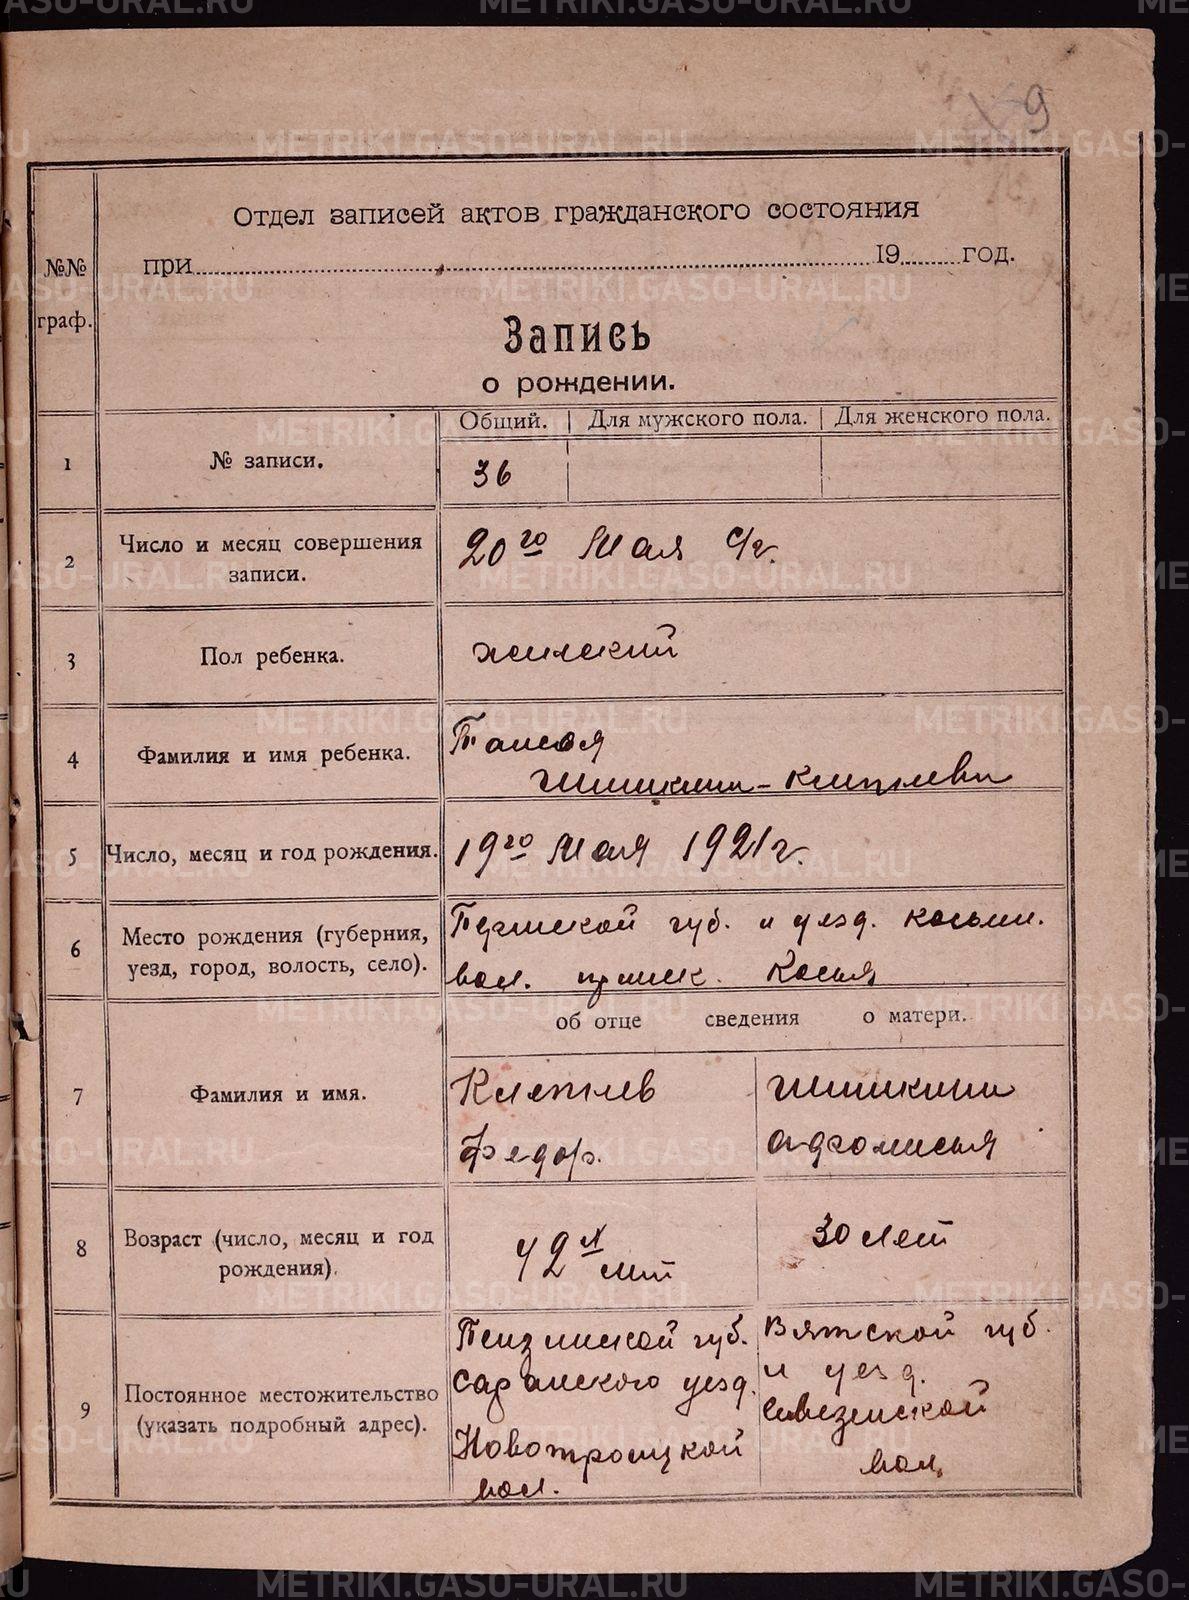 9
Отдел записей актов гражданского состояния
№№ граф.
при 19 год.
Запись
о рождении.
Общий. Для мужского пола. Для женского пола.
1 № записи. 36
2 Число и месяц совершения записи. 20го Мая с/г.
3 Пол ребенка. женский
4 Фамилия и имя ребенка.
Шишкина-
5 Число, месяц и год рождения. 19го Мая 1921 г.
6 Место рождения (губерния, уезд, город, волость, село). Пермской губ. и уезд.
вол. прииск. Косья
об отце сведения о матери.
7 Фамилия и имя. Шишкина
Федор.
8 Возраст (число, месяц и год рождения). 42х лет 30 лет
9 Постоянное местожительство (указать подробный адрес).
Пензинской губ.
Саранского уезд.
Новотроицкой
вол.
Вятской губ.
и уезд.
вол.
METRIKI.GASO-URAL.RU